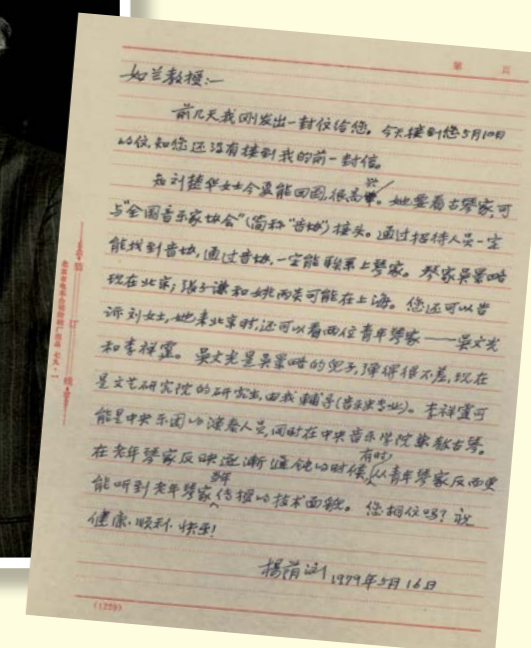 第 页
如兰教授:—
前几天我刚发出一封信给您。今天接到您5月10日
的信,知您还没有接到我的前一封信。
知刘楚华女士今夏能回国,很高兴。她要看古琴家可
与“全国音乐家协会”(简称“音协”)接头。通过招待人员一定
能找到音协,通过音协,一定能联系上琴家。琴家吴景略
现在北京;张子谦和姚丙炎可能在上海。您还可以告
诉刘女士,她来北京时,还可以看两位青年琴家——吴文光
和李祥霆。吴文光是吴景略的儿子,弹得很不差,现在
是文艺研究院的研究生,由我辅导(音乐史专业)。李祥霆可
能是中央乐团的演奏人员,同时在中央音乐学院兼教古琴。
在老年琴家反映逐渐迟钝的时候,有时从青年琴家反而更
能听到老年琴家当年传授的技术面貌。您相信吗?祝
健康·顺利·快乐!
杨荫浏 1979年5月16日
装订线
(1229)